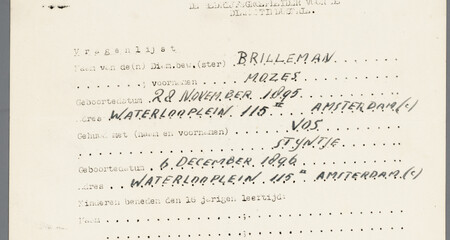 Vragenlijst
Naam van de(n) Diam.bew.(ster) BRILLEMAN
: voornamen MOZES
Geboortedatum 28 NOVEMBER 1895
Adres WATERLOOPLEIN 115 II AMSTERDAM.(c)
Gehuwd met (naam en voornamen) VOS
STIJNTJE
Geboortedatum 6 DECEMBER 1896
Adres WATERLOOPLEIN 115 II AMSTERDAM.(c)
Kinderen beneden den 16 jarigen leeftijd:
Naam :
: